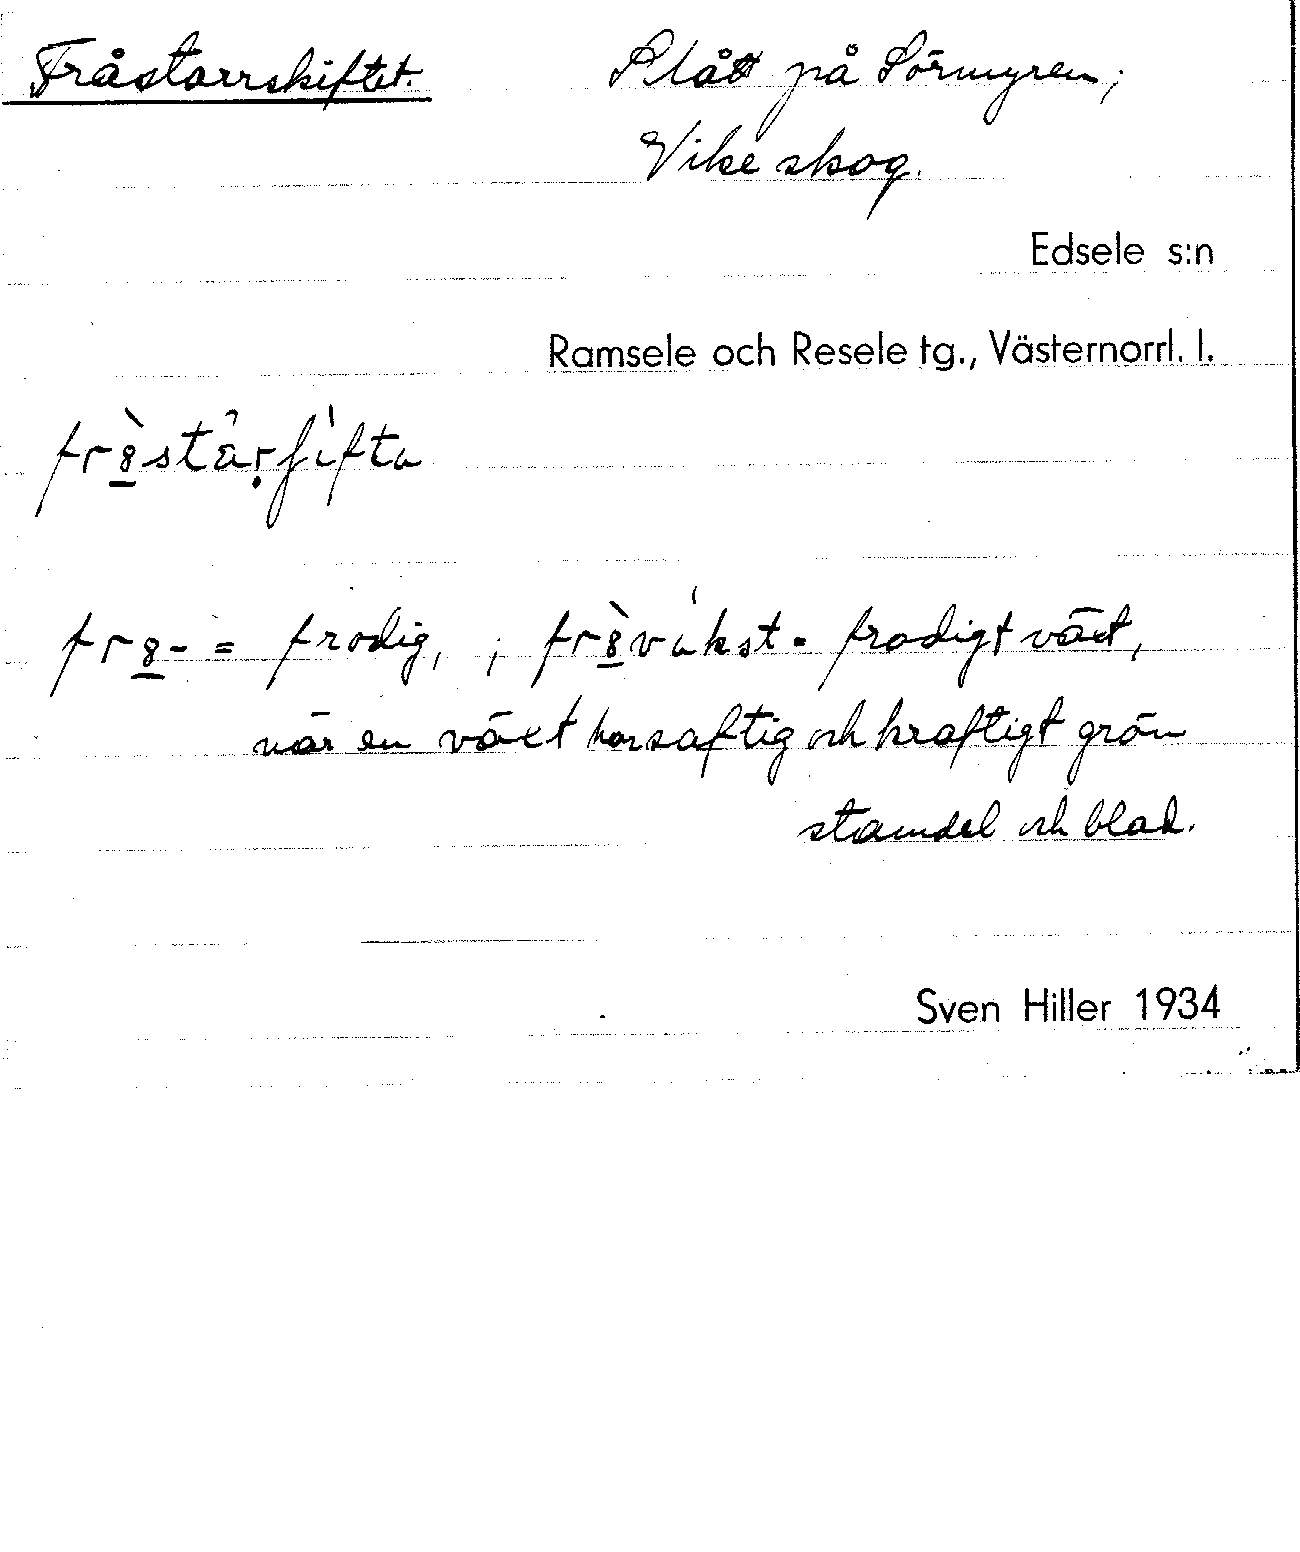 Fråstarrskiftet. Slått på Sörmyren;
Vike skog.
Edsele s:n
Ramsele och Resele tg., Västernorrl. l.
frodig, ; frodigt växt,
när en växt har saftig och kraftigt grön
stamdel och blad.
Sven Hiller 1934